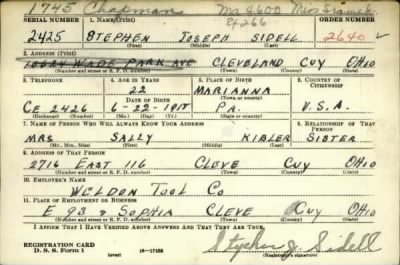 1745 Chapman Mr 4600 Miss
Ex266
SERIAL NUMBER 1. NAME (Print) ORDER NUMBER
2425 STEPHEN JOSEPH SIDELL 2640
(First) (Middle) (Last)
2. ADDRESS (Print)
10624 WADE PARK AVE CLEVELAND CUY OHIO
(Number and street or R. F. D. number) (Town) (County) (State)
3. TELEPHONE 4. AGE IN YEARS 5. PLACE OF BIRTH 6. COUNTRY OF CITIZENSHIP
22 MARIANNA
DATE OF BIRTH (Town or county)
CE. 2426 6-22-1917 PA. U.S.A.
(Exchange) (Number) (Mo.) (Day) (Yr.) (State or country)
7. NAME OF PERSON WHO WILL ALWAYS KNOW YOUR ADDRESS 8. RELATIONSHIP OF THAT PERSON
MRS SALLY KIBLER SISTER
(Mr., Mrs., Miss) (First) (Middle) (Last)
9. ADDRESS OF THAT PERSON
2716 EAST 116 CLEVE CUY OHIO
(Number and street or R. F. D. number) (Town) (County) (State)
10. EMPLOYER'S NAME
WELDON TOOL CO
11. PLACE OF EMPLOYMENT OR BUSINESS
E 93 & SOPHIA CLEVE CUY OHIO
(Number and street or R. F. D. number) (Town) (County) (State)
I AFFIRM THAT I HAVE VERIFIED ABOVE ANSWERS AND THAT THEY ARE TRUE.
REGISTRATION CARD
D. S. S. Form 1 16-17105 Stephen J. Sidell